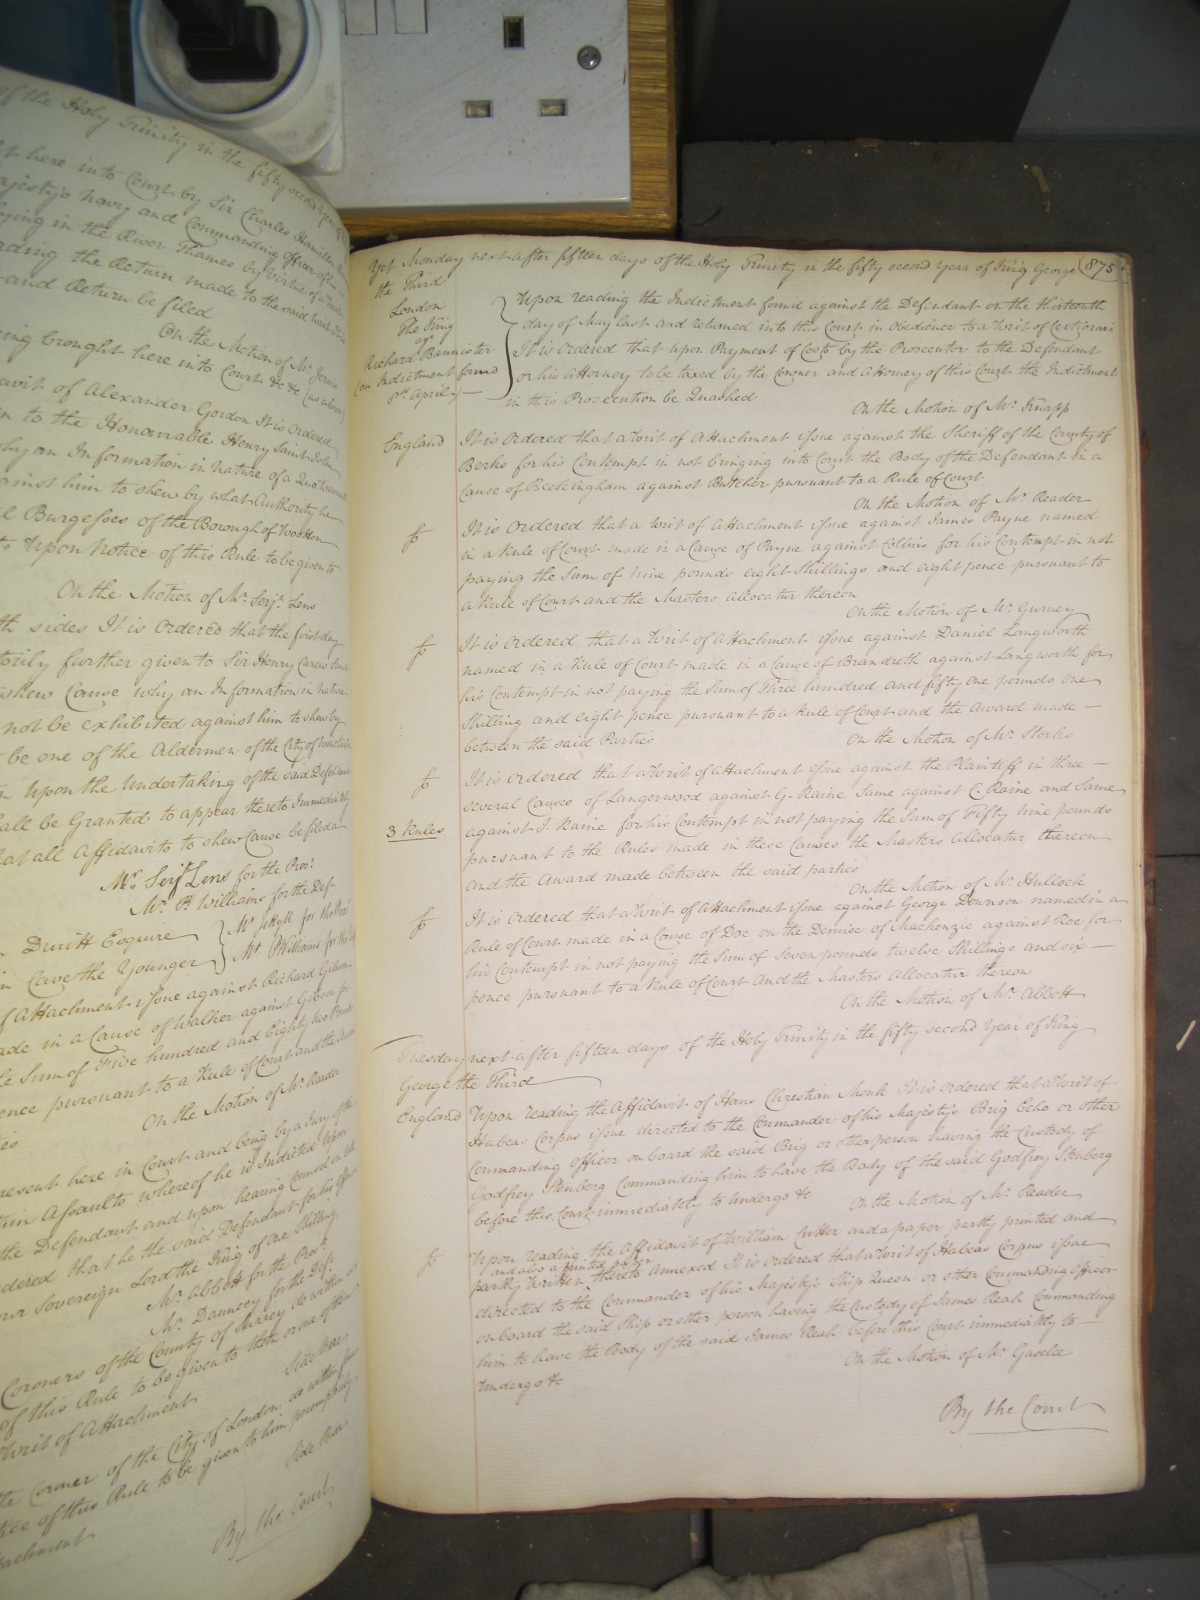 of the Holy Trinity in the fifty second year of
here into Court by Sir Charles Hamilton
Majesty's Navy and Commanding Officer of his
lying in the River Thames by Virtue of a
reading the Return made to the said Writ
and Return be filed
On the Motion of Mr. Jervis
being brought here into Court &c &c (as above)
of Alexander Gordon It is Ordered
to the Honourable Henry Saint John
why an Information in Nature of a Quo Warranto
against him to shew by what Authority he
Burgesses of the Borough of Wootton
Upon Notice of this Rule to be given to
On the Motion of Mr. Serjt. Lens
sides It is Ordered that the first day
further given to Sir Henry Carew
shew Cause why an Information in Nature
not be exhibited against him to shew by
be one of the Aldermen of the City of
Upon the Undertaking of the said Defendant
shall be Granted to appear thereto Immediately
that all Affidavits to shew Cause be filed
Mr. Serjt. Lens for the Pros.
Mr. P. Williams for the Def.
Druitt Esquire
Mr. Jekyll for the Pros.
Cave the Younger
Mr. P Williams for the Def.
of Attachment issue against Richard Gibson
made in a Cause of Walker against Gibson for
Sum of Five hundred and Eighty two Pounds
pence pursuant to a Rule of Court and the
On the Motion of Mr. Reader
present here in Court and being by a Jury of the
Assaults whereof he is Indicted Upon
the Defendant and upon hearing Counsel on both
Ordered that he the said Defendant for his Offence
our Sovereign Lord the King of One Shilling
Mr. Abbott for the Pros.
Mr. Dauncey for the Def.
Coroners of the County of Surrey do within six
of this Rule to be given to them or one of them
Writ of Attachment
Side Bar
the Coroner of the City of London do within four
of this Rule to be given to him peremptorily
Side Bar
Attachment
By the Court
Yet Monday next after fifteen days of the Holy Trinity in the fifty second Year of King George 875
the Third
London
The King
agt
Richard Bannister
(on Indictment found
8th. April)
Upon reading the Indictment found against the Defendant on the thirteenth
day of May last and returned into this Court in obedience to a Writ of Certiorari
It is Ordered that upon Payment of Costs by the Prosecutor to the Defendant
or his Attorney to be taxed by the Coroner and Attorney of this Court the Indictment
in this Prosecution be Quashed
On the Motion of Mr. Knapp
England
It is Ordered that a Writ of Attachment issue against the Sheriff of the County of
Berks for his Contempt in not bringing into Court the Body of the Defendant in a
Cause of Beckingham against Butcher pursuant to a Rule of Court
On the Motion of Mr. Reader
It is Ordered that a Writ of Attachment issue against James Payne named
in a Rule of Court made in a Cause of Payne against Collins for his Contempt in not
paying the Sum of Nine pounds eight Shillings and eight pence pursuant to
a Rule of Court and the Masters Allocatur thereon
On the Motion of Mr. Gurney
It is Ordered that a Writ of Attachment issue against Daniel Langworth
named in a Rule of Court made in a Cause of Brandreth against Langworth for
his Contempt in not paying the Sum of Three hundred and fifty one pounds one
Shilling and eight pence pursuant to a Rule of Court and the Award made
between the said Parties
On the Motion of Mr. Storks
It is Ordered that a Writ of Attachment issue against the Plaintiff in three
several Causes of Langorwood against G. Raine Same against C. Raine and Same
3 Rules
against J. Raine for his Contempt in not paying the Sum of Fifty Nine pounds
pursuant to the Rules made in these Causes the Masters Allocatur thereon
and the Award made between the said parties
On the Motion of Mr. Hullock
It is Ordered that a Writ of Attachment issue against George Downson named in a
Rule of Court made in a Cause of Doe on the Demise of Mackenzie against Roe for
his Contempt in not paying the Sum of Seven pounds twelve Shillings and six
pence pursuant to a Rule of Court And the Masters Allocatur thereon
On the Motion of Mr. Abbott
Tuesday next after fifteen days of the Holy Trinity in the fifty second Year of King
George the Third
England
Upon reading the Affidavit of Hans Chrestian Monk It is ordered that a Writ of
Habeas Corpus issue directed to the Commander of his Majesty's Brig Echo or other
Commanding Officer on board the said Brig or other person having the Custody of
Godfrey Stenberg Commanding him to have the Body of the said Godfrey Stenberg
before this Court immediately to undergo &c
On the Motion of Mr. Reader
Upon reading the Affidavit of William Cutter and a paper partly printed and
and also a printed paper
partly Written thereto Annexed It is Ordered that a Writ of Habeas Corpus issue
directed to the Commander of his Majesty's Ship Queen or other Commanding Officer
on board the said Ship or other person having the Custody of James Reah Commanding
him to have the Body of the said James Reah before this Court immediately to
undergo &c
On the Motion of Mr. Gaselee
By the Court